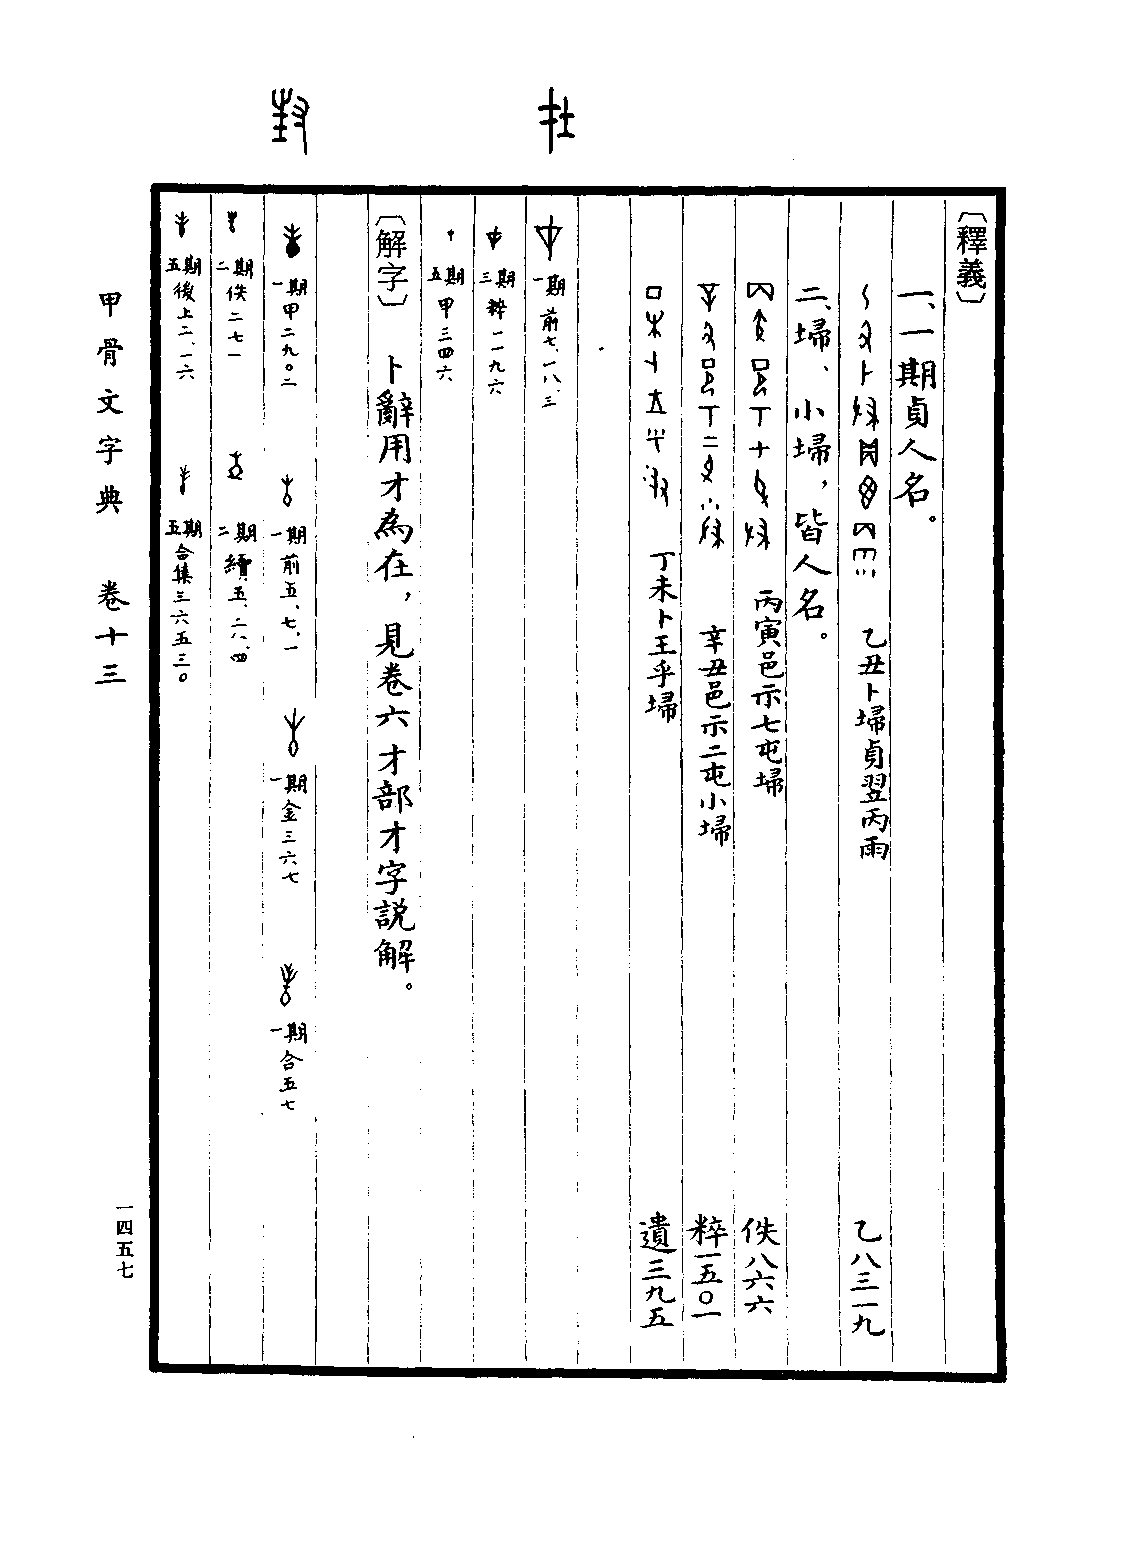 〔釋義〕
一、一期貞人名。
乙丑卜埽貞翌丙雨 乙八三一九
二、埽、小埽，皆人名。
丙寅邑示七屯埽 佚八六六
辛丑邑示二屯小埽 粹一五〇一
丁未卜王乎埽 遺三九五
一期 前七、一八、三
三期 粹一一九六
五期 甲三四六
〔解字〕 卜辭用才為在，見卷六才部才字説解。
一期 甲二九〇二 一期 前五、七、一 一期 金三六七 一期 合五七
二期 佚二七一 二期 續五、二八、四
五期 後上二、一六 五期 合集三六五三〇
甲骨文字典 卷十三
一四五七